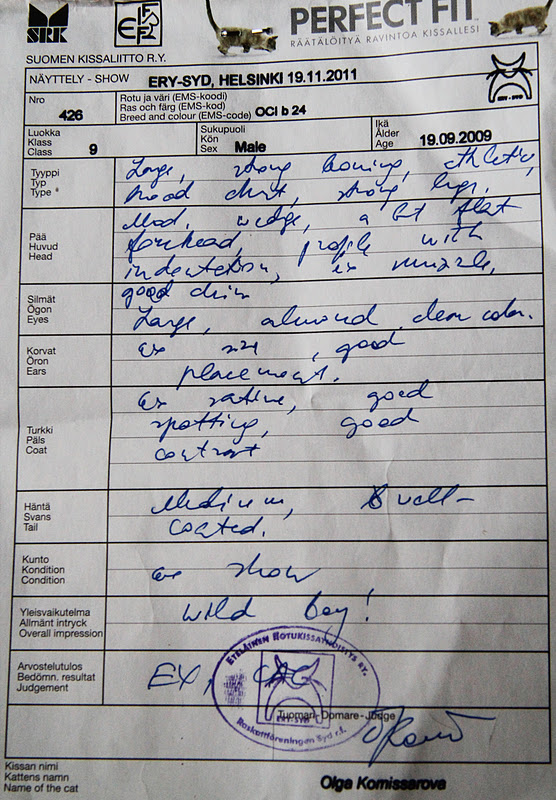 SRK
FIFe
PERFECT FIT
RÄÄTÄLÖITYÄ RAVINTOA KISSALLESI
SUOMEN KISSALIITTO R.Y.
NÄYTTELY - SHOW ERY-SYD, HELSINKI 19.11.2011
ERY-SYD
Nro 426
Rotu ja väri (EMS-koodi)
Ras och färg (EMS-kod)
Breed and colour (EMS-code) OCI b 24
Luokka
Klass
Class 9
Sukupuoli
Kön
Sex Male
Ikä
Ålder
Age 19.09.2009
Tyyppi
Typ
Type
Large, strong boning, athletic,
broad chest, strong legs,
Pää
Huvud
Head
Mod. wedge, a bit flat
forehead, profile with
indentation, ex muzzle,
good chin
Silmät
Ögon
Eyes
Large, almond, clear color.
Korvat
Öron
Ears
ex size, good
placement.
Turkki
Päls
Coat
ex satine, good
spotting, good
contrast
Häntä
Svans
Tail
Medium, & well-
coated.
Kunto
Kondition
Condition
ex show
Yleisvaikutelma
Allmänt intryck
Overall impression
wild boy!
Arvostelutulos
Bedömn. resultat
Judgement
EX, CAC
ETELÄINEN ROTUKISSAYHDISTYS RY.
ERY-SYD
Raskattföreningen Syd r.f.
Tuomari - Domare - Judge
Kissan nimi
Kattens namn
Name of the cat
Olga Komissarova